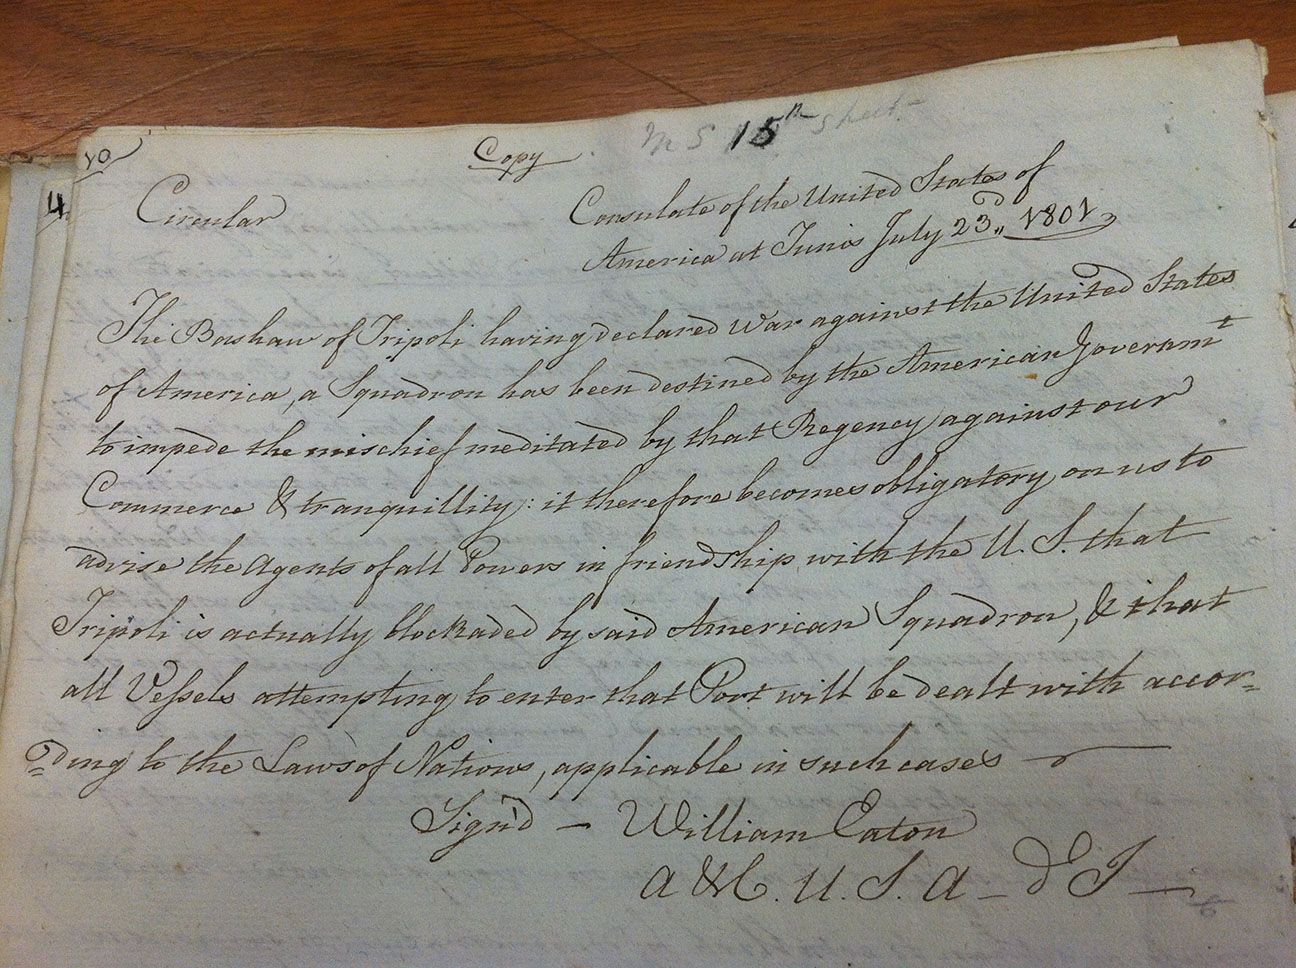 10
Copy
15th sheet
4
Circular
Consulate of the United States of
America at Tunis July 23d,, 1801,
The Bashaw of Tripoli having declared War against the United States
of America, a Squadron has been destined by the American Governmt
to impede the mischief meditated by that Regency against our
Commerce & tranquillity: it therefore becomes obligatory on us to
advise the Agents of all Powers in friendship with the U. S. that
Tripoli is actually blockaded by said American Squadron, & that
all Vessels attempting to enter that Port will be dealt with accor-
ding to the Laws of Nations, applicable in such cases —
Sign'd — William Eaton